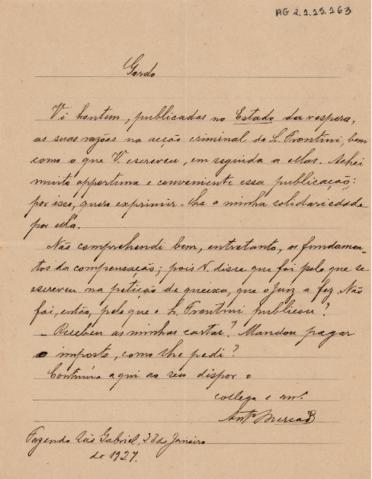 AG 2.1.25.163
Gordo
Vi hontem, publicadas no Estado da vespera,
as suas razões na acção criminal do L. Frontini, bem
como o que V. escreveu, em seguida a ellas. Achei
muito opportuna e conveniente essa publicação:
por isso, quero exprimir-lhe a minha solidariedade
por ella.
Não comprehendi bem, entretanto, os fundamen-
tos da compensação; pois V. disse que foi pelo que se
escreveu na petição de queixa, que o Juiz a fez. Não
foi, então, pelo que o L. Frontini publicou?
- Recebeu as minhas cartas? Mandou pagar
o imposto, como lhe pedi?
Continúa aqui ao seu dispor o
collega e amº.
Antº Mercado
Fazenda São Gabriel, de Janeiro
de 1927.